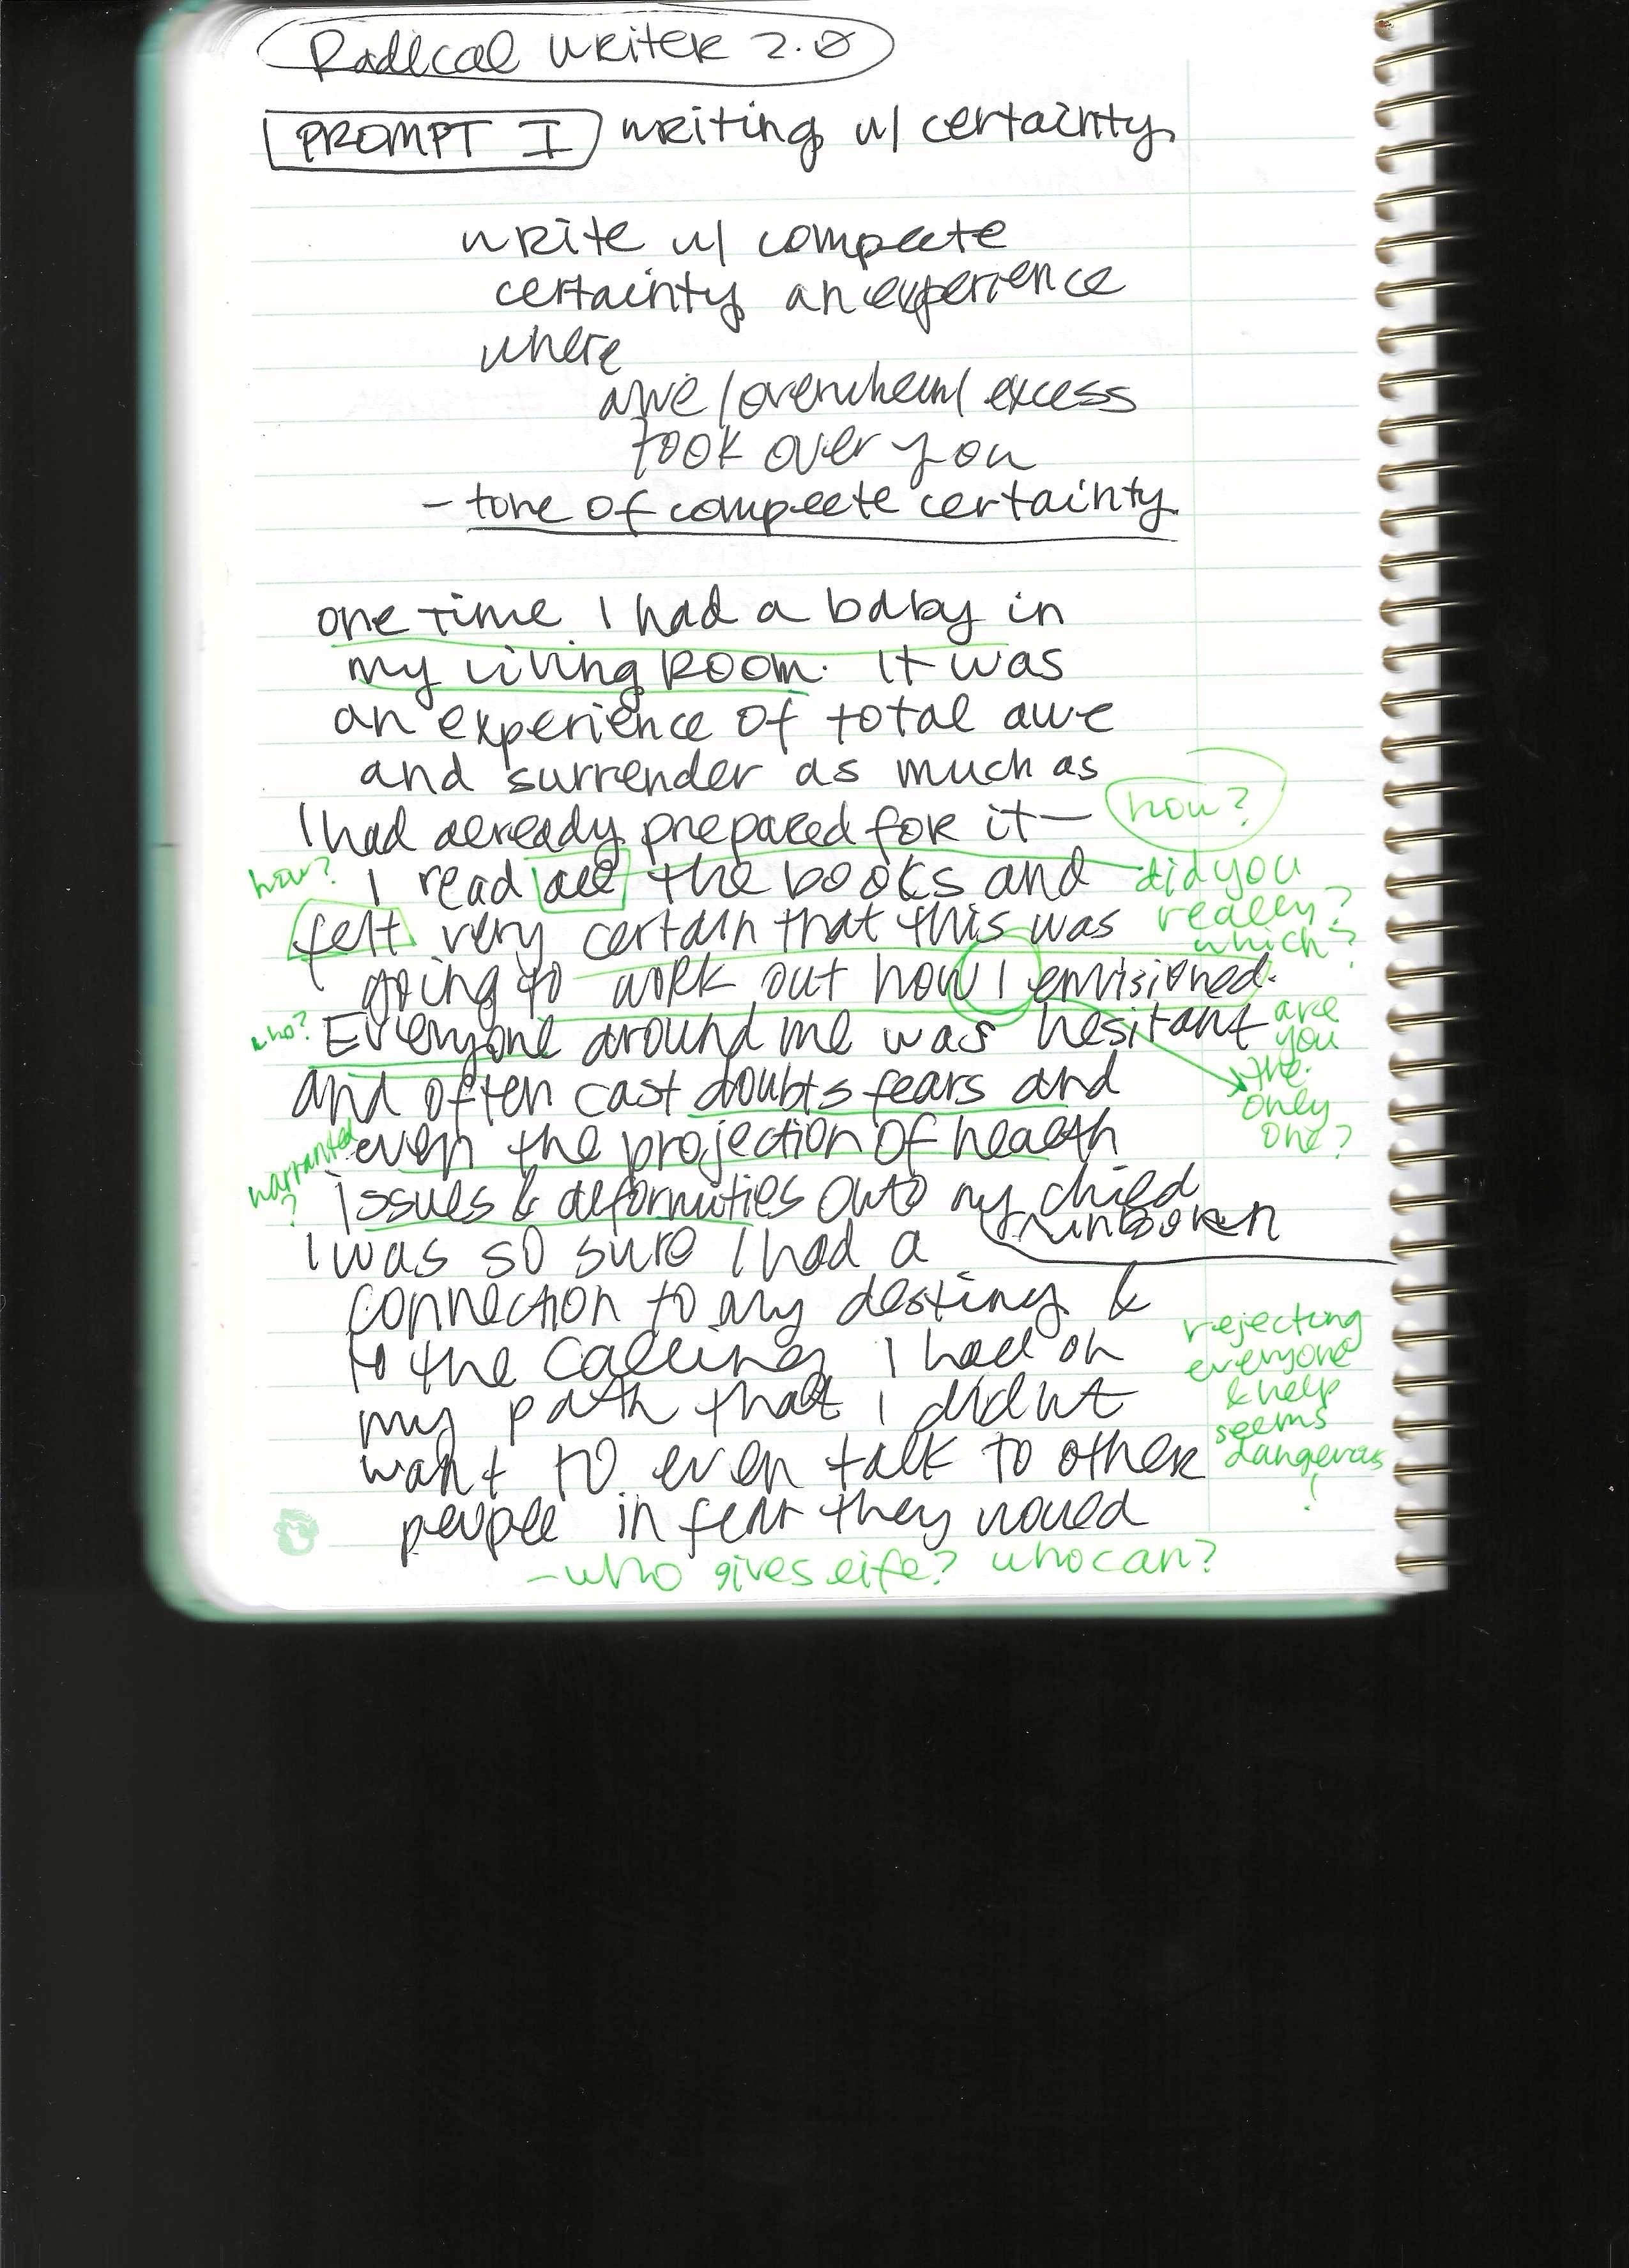 Radical Writer 2.0
PROMPT I writing w/ certainty
write w/ complete
certainty an experience
where
awe/overwhelm/excess
took over you
- tone of complete certainty
one time I had a baby in
my living room. It was
an experience of total awe
and surrender as much as
I had already prepared for it— how?
how? I read all the books and did you
felt very certain that this was really?
which?
going to work out how I envisioned.
who? Everyone around me was hesitant are
you
the
and often cast doubts fears and only
one?
warranted? even the projection of health
issues & deformities onto my child
unborn
I was so sure I had a
connection to my destiny &
to the calling I had on
my path that I didnt
want to even talk to other
people in fear they would
rejecting
everyone
& help
seems
dangerous
!
- who gives life? who can?